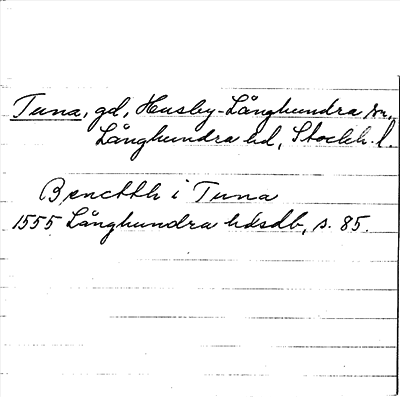 Tuna, gd, Husby-Långhundra sn,
Långhundra hd, Stockh. l.
Benckth i Tuna
1555 Långhundra hdsdb, s. 85.